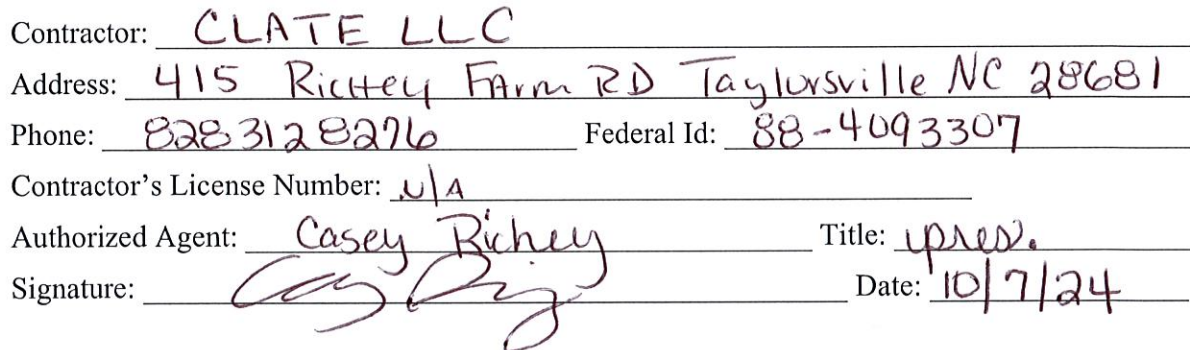 Contractor: CLATE LLC
Address: 415 Richey Farm RD Taylorsville NC 28681
Phone: 8283128276 Federal Id: 88-4093307
Contractor's License Number: N/A
Authorized Agent: Casey Richey Title: pres.
Signature: Date: 10/7/24